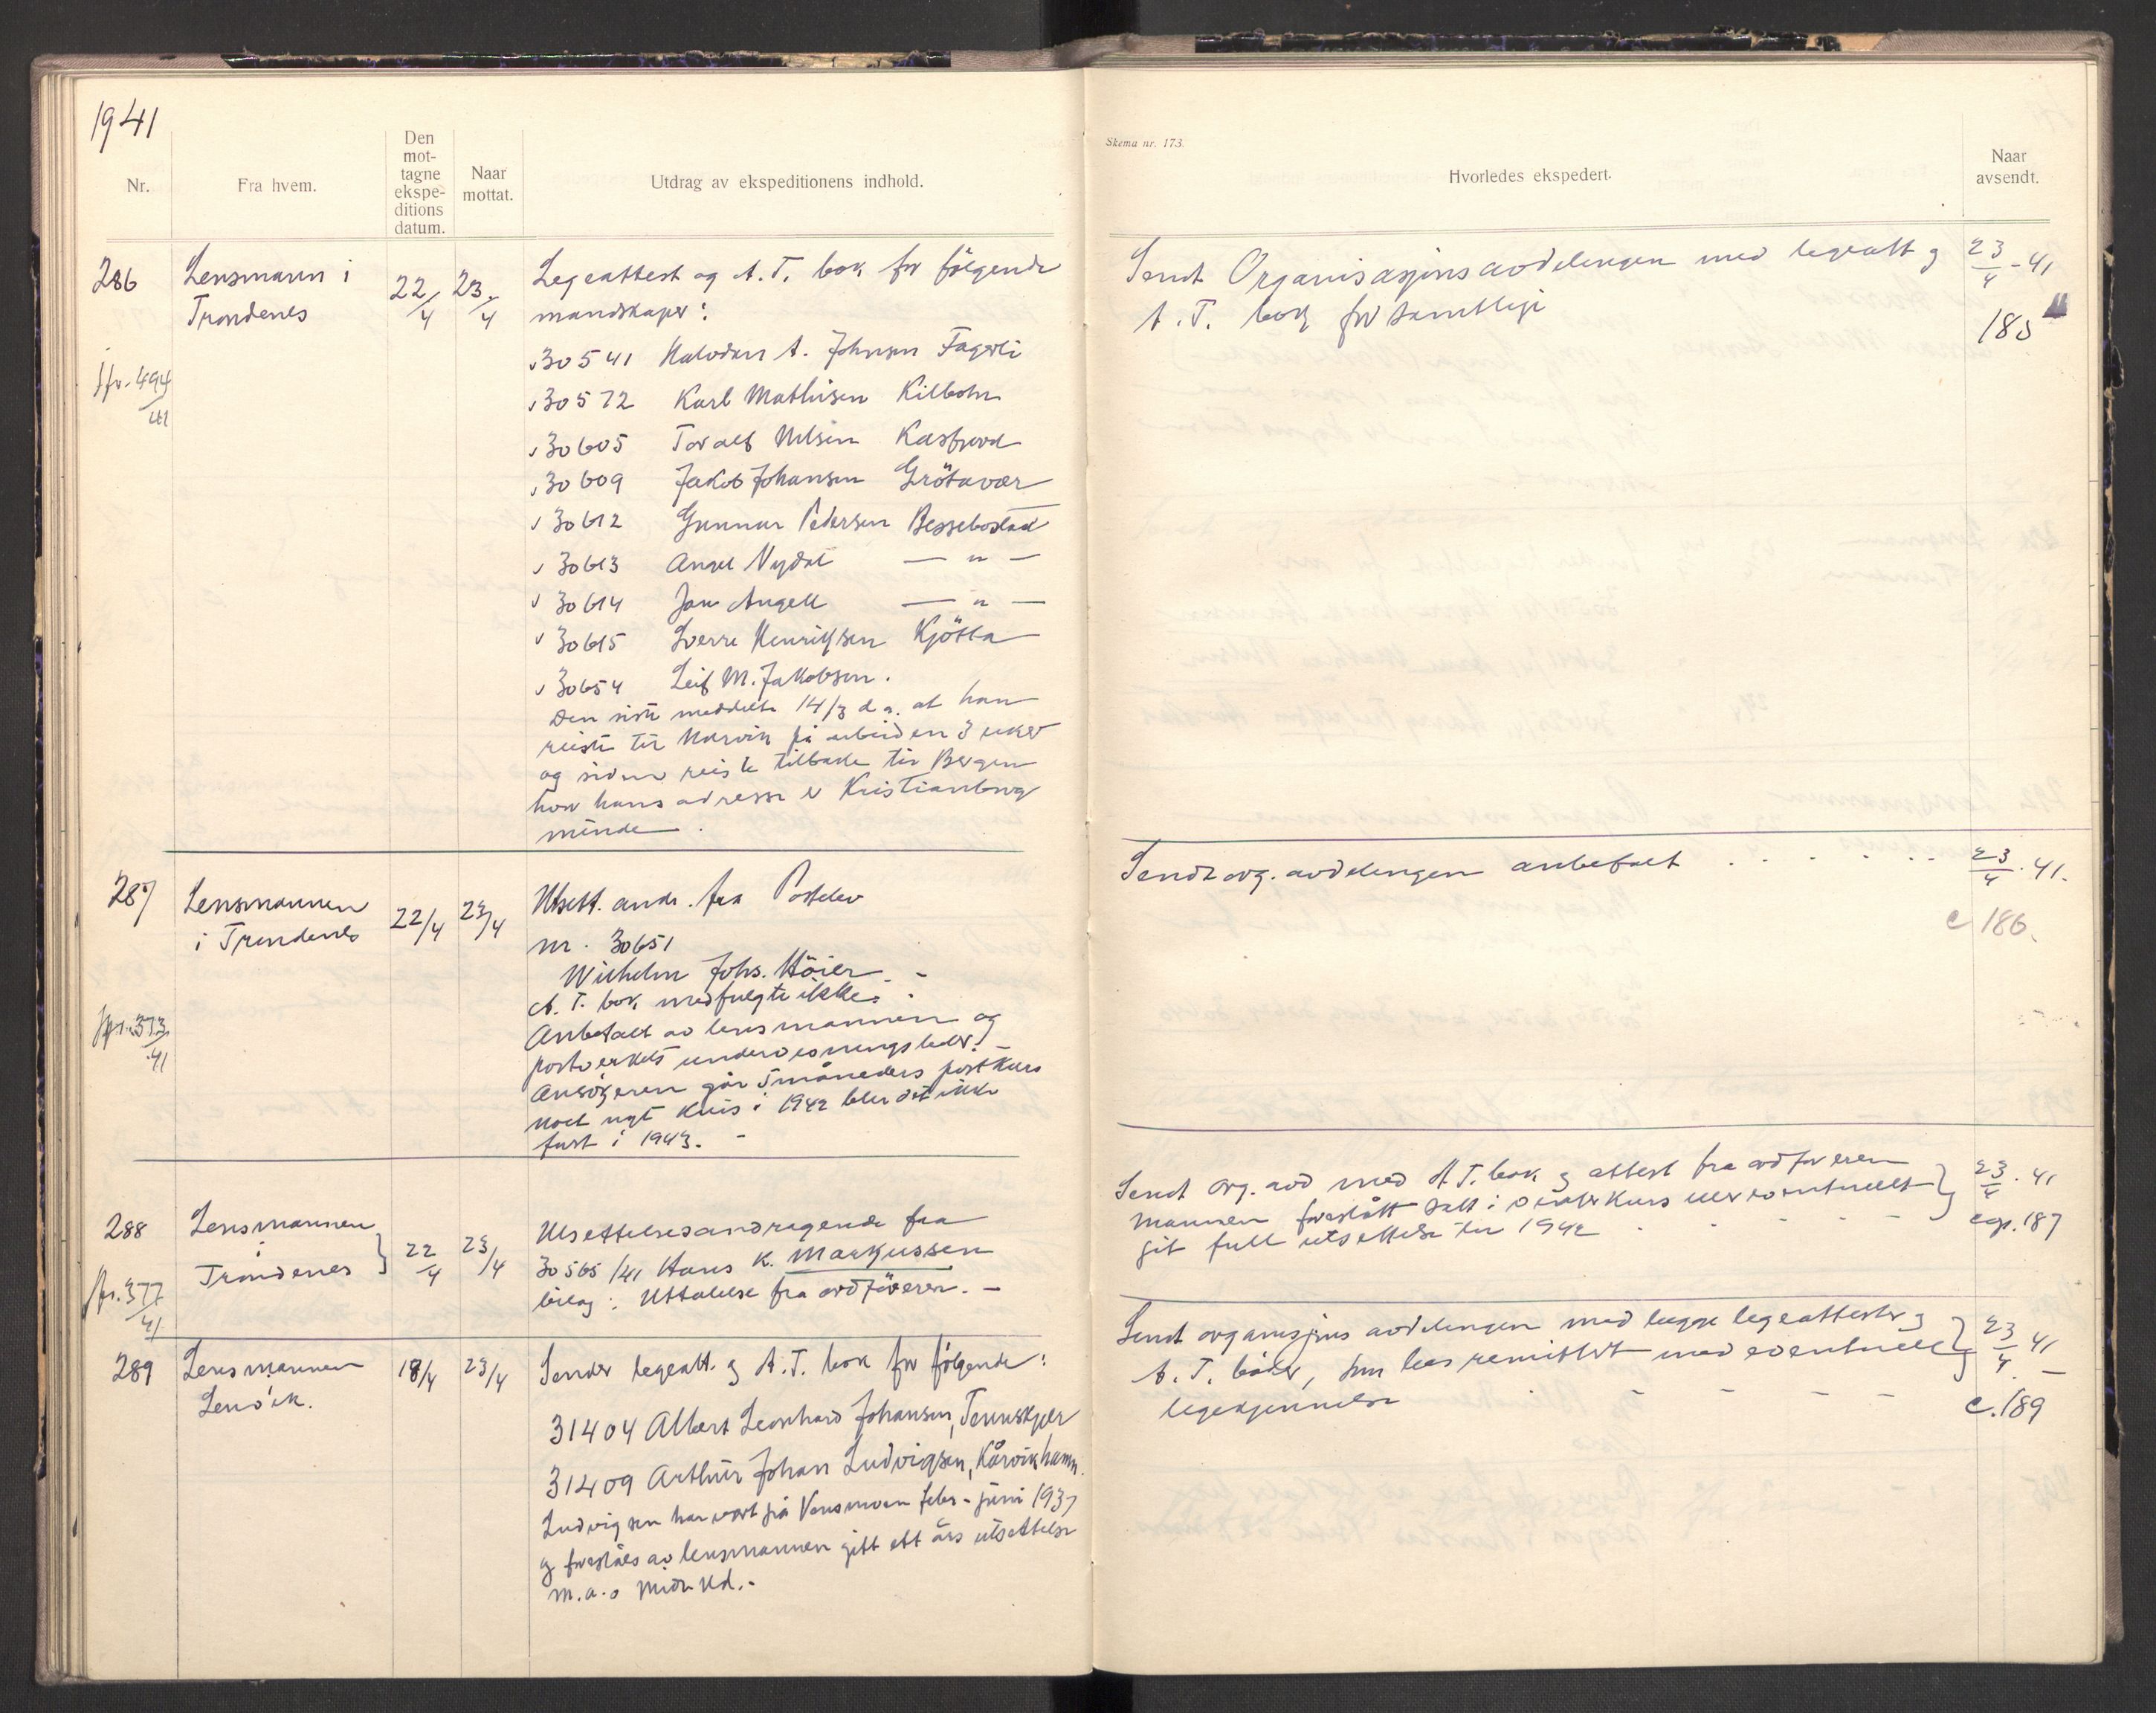 1941
Nr.
Fra hvem.
Den
mot-
tagne
ekspe-
ditions
datum.
Naar
mottat.
Utdrag av ekspeditionens indhold.
286
Lensmann i
Trondenes
22/4
23/4
jfr. 494/41
Legeattest og A.T. bok for følgende
mandskaper:
30541 Halvdan A. Johnsen Fagerli
30572 Karl Mathisen Kilbotn
30605 Toralf Nilsen Kasfjord
30609 Jakob Johansen Grötavær
30612 Gunnar Pedersen Bessebostad
30613 Angel Nydal — " —
30614 Jan Angell — " —
30615 Sverre Henriksen Kjötta
30654 Leif M. Jakobsen.
Den siste meddelte 14/3 d.a. at han
reiste til Narvik på arbeid en 3 uker
og siden reiste tilbake til Bergen
hvor hans adresse er Kristianborg
minde.
287
Lensmannen
i Trondenes
22/4
23/4
jfr. 373/41
Utsett. andr. fra Postelev
nr. 30651
Wilhelm Johs. Höier. -
A.T. bok medfulgte ikke.
Anbefalt av lensmannen og
postverkets undervisningsleder. -
Ansökeren går 5 måneders postkurs
nytt kurs i 1942 blir det ikke
først i 1943. -
288
Lensmannen
i
Trondenes
22/4
23/4
jfr. 377/41
Utsettelsesandragende fra
30565/41 Hans K. Markussen
bilag: Uttalelse fra ordföreren. -
289
Lensmannen
Lenvik.
18/4
23/4
Sender legeatt. g A.T. bok for følgende:
31404 Albert Leonhard Johansen, Tennskjer
31409 Arthur Johan Ludvigsen, Kårvikhamn.
Ludvigsen har vært på Vensmoen febr - juni 1937
g foreslåes av lensmannen gitt ett års utsettelse
m.a.o midl. Ud. -
Skema nr. 173.
Hvorledes ekspedert.
Naar
avsendt.
Sendt Organisasjonsavdelingen med legeatt g
A.T. bok for samtlige
23/4-41
185
Sendt org. avdelingen anbefalt . . . . . .
23/4.41.
c 186.
Sendt org. avd med A.T. bok g attest fra ordföreren
Mannen foreslått satt i vinterkurs eller eventuellt
git full utsettelse til 1942
23/4.41
187
Sendt organisasjons avdelingen med begge legeattester g
A.T. böker, som bees remittert med eventuell
legekjennelse
23/4 41
c. 189